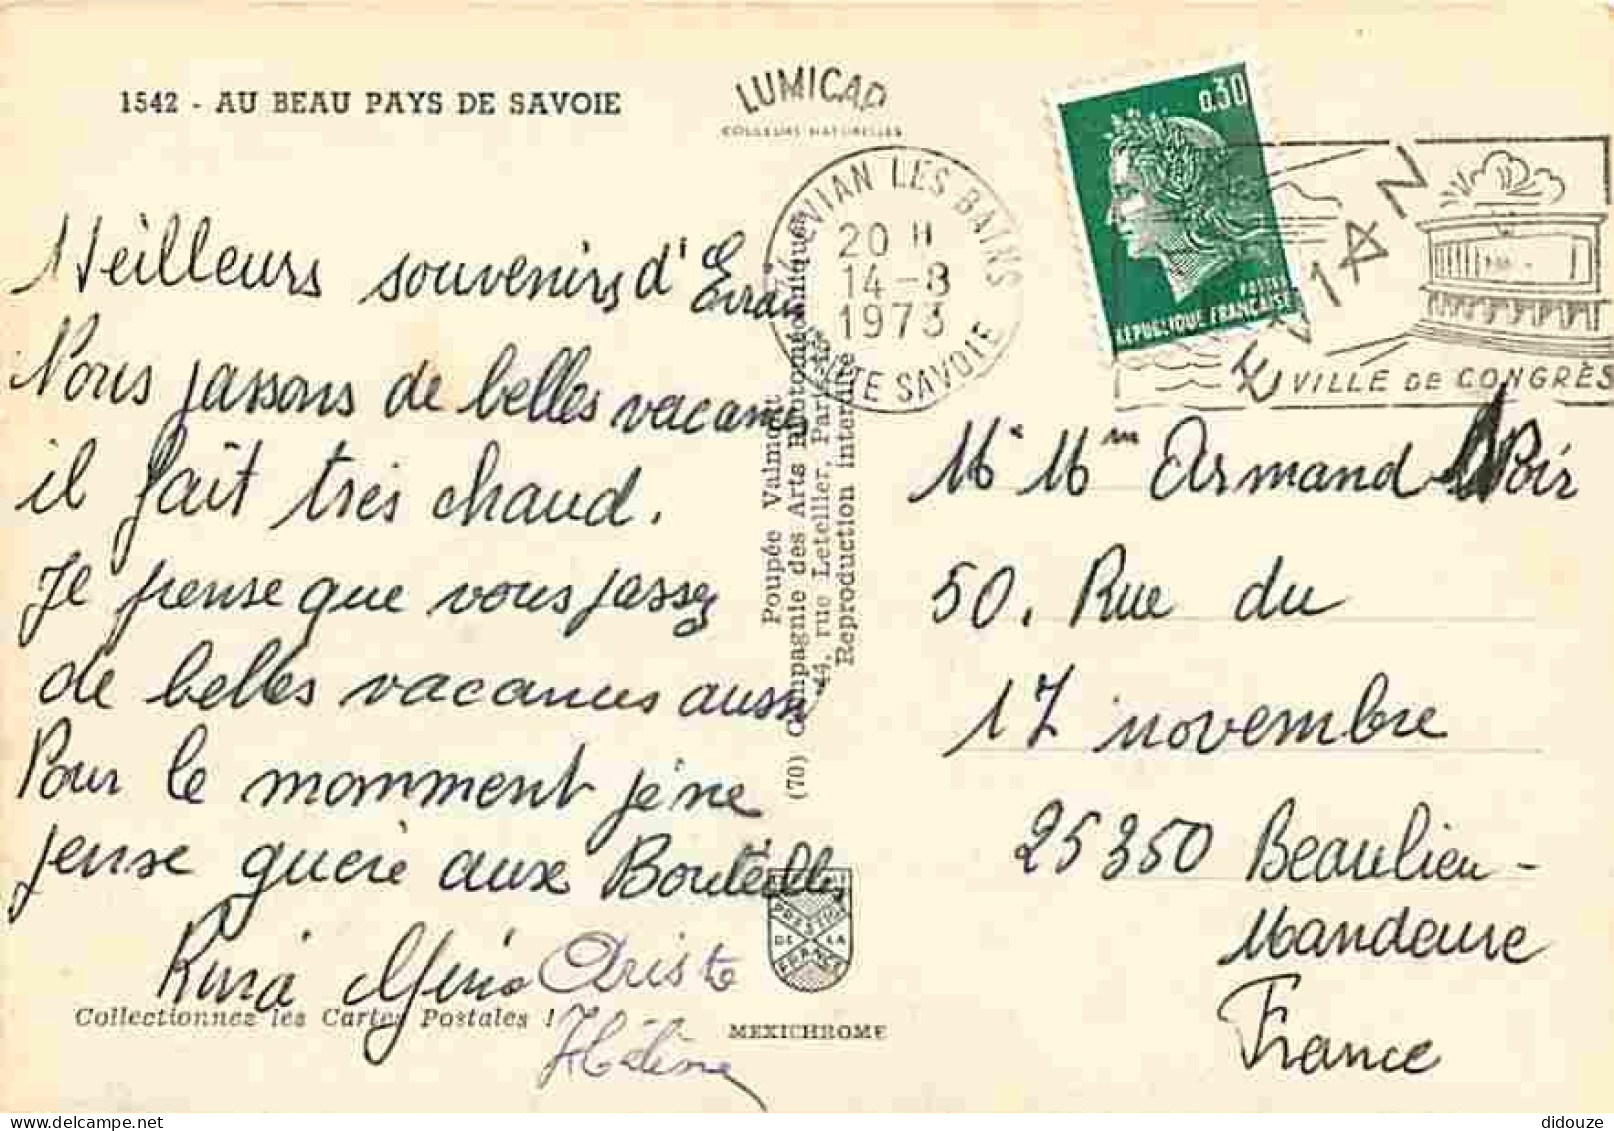 1542 - AU BEAU PAYS DE SAVOIE
LUMICAP
COULEURS NATURELLES
EVIAN LES BAINS
20 H
14-8
1973
HTE SAVOIE
0,30
POSTES
REPUBLIQUE FRANÇAISE
EVIAN
VILLE DE CONGRÈS
Meilleurs souvenirs d'Evian
Nous passons de belles vacances
il fait très chaud.
Je pense que vous passez
de belles vacances aussi
Pour le momment je ne
pense guère aux Bouteilles
Ariste
Hélène
Poupée Valmont
(70) Compagnie des Arts Photomécaniques
44, rue Letellier, Paris-15e
Reproduction interdite
PRESTIGE
DE LA
FRANCE
Collectionnez les Cartes Postales !
MEXICHROME
Mr Mme Armand Noir
50. Rue du
17 novembre
25350 Beaulieu-
Mandeure
France
didouze